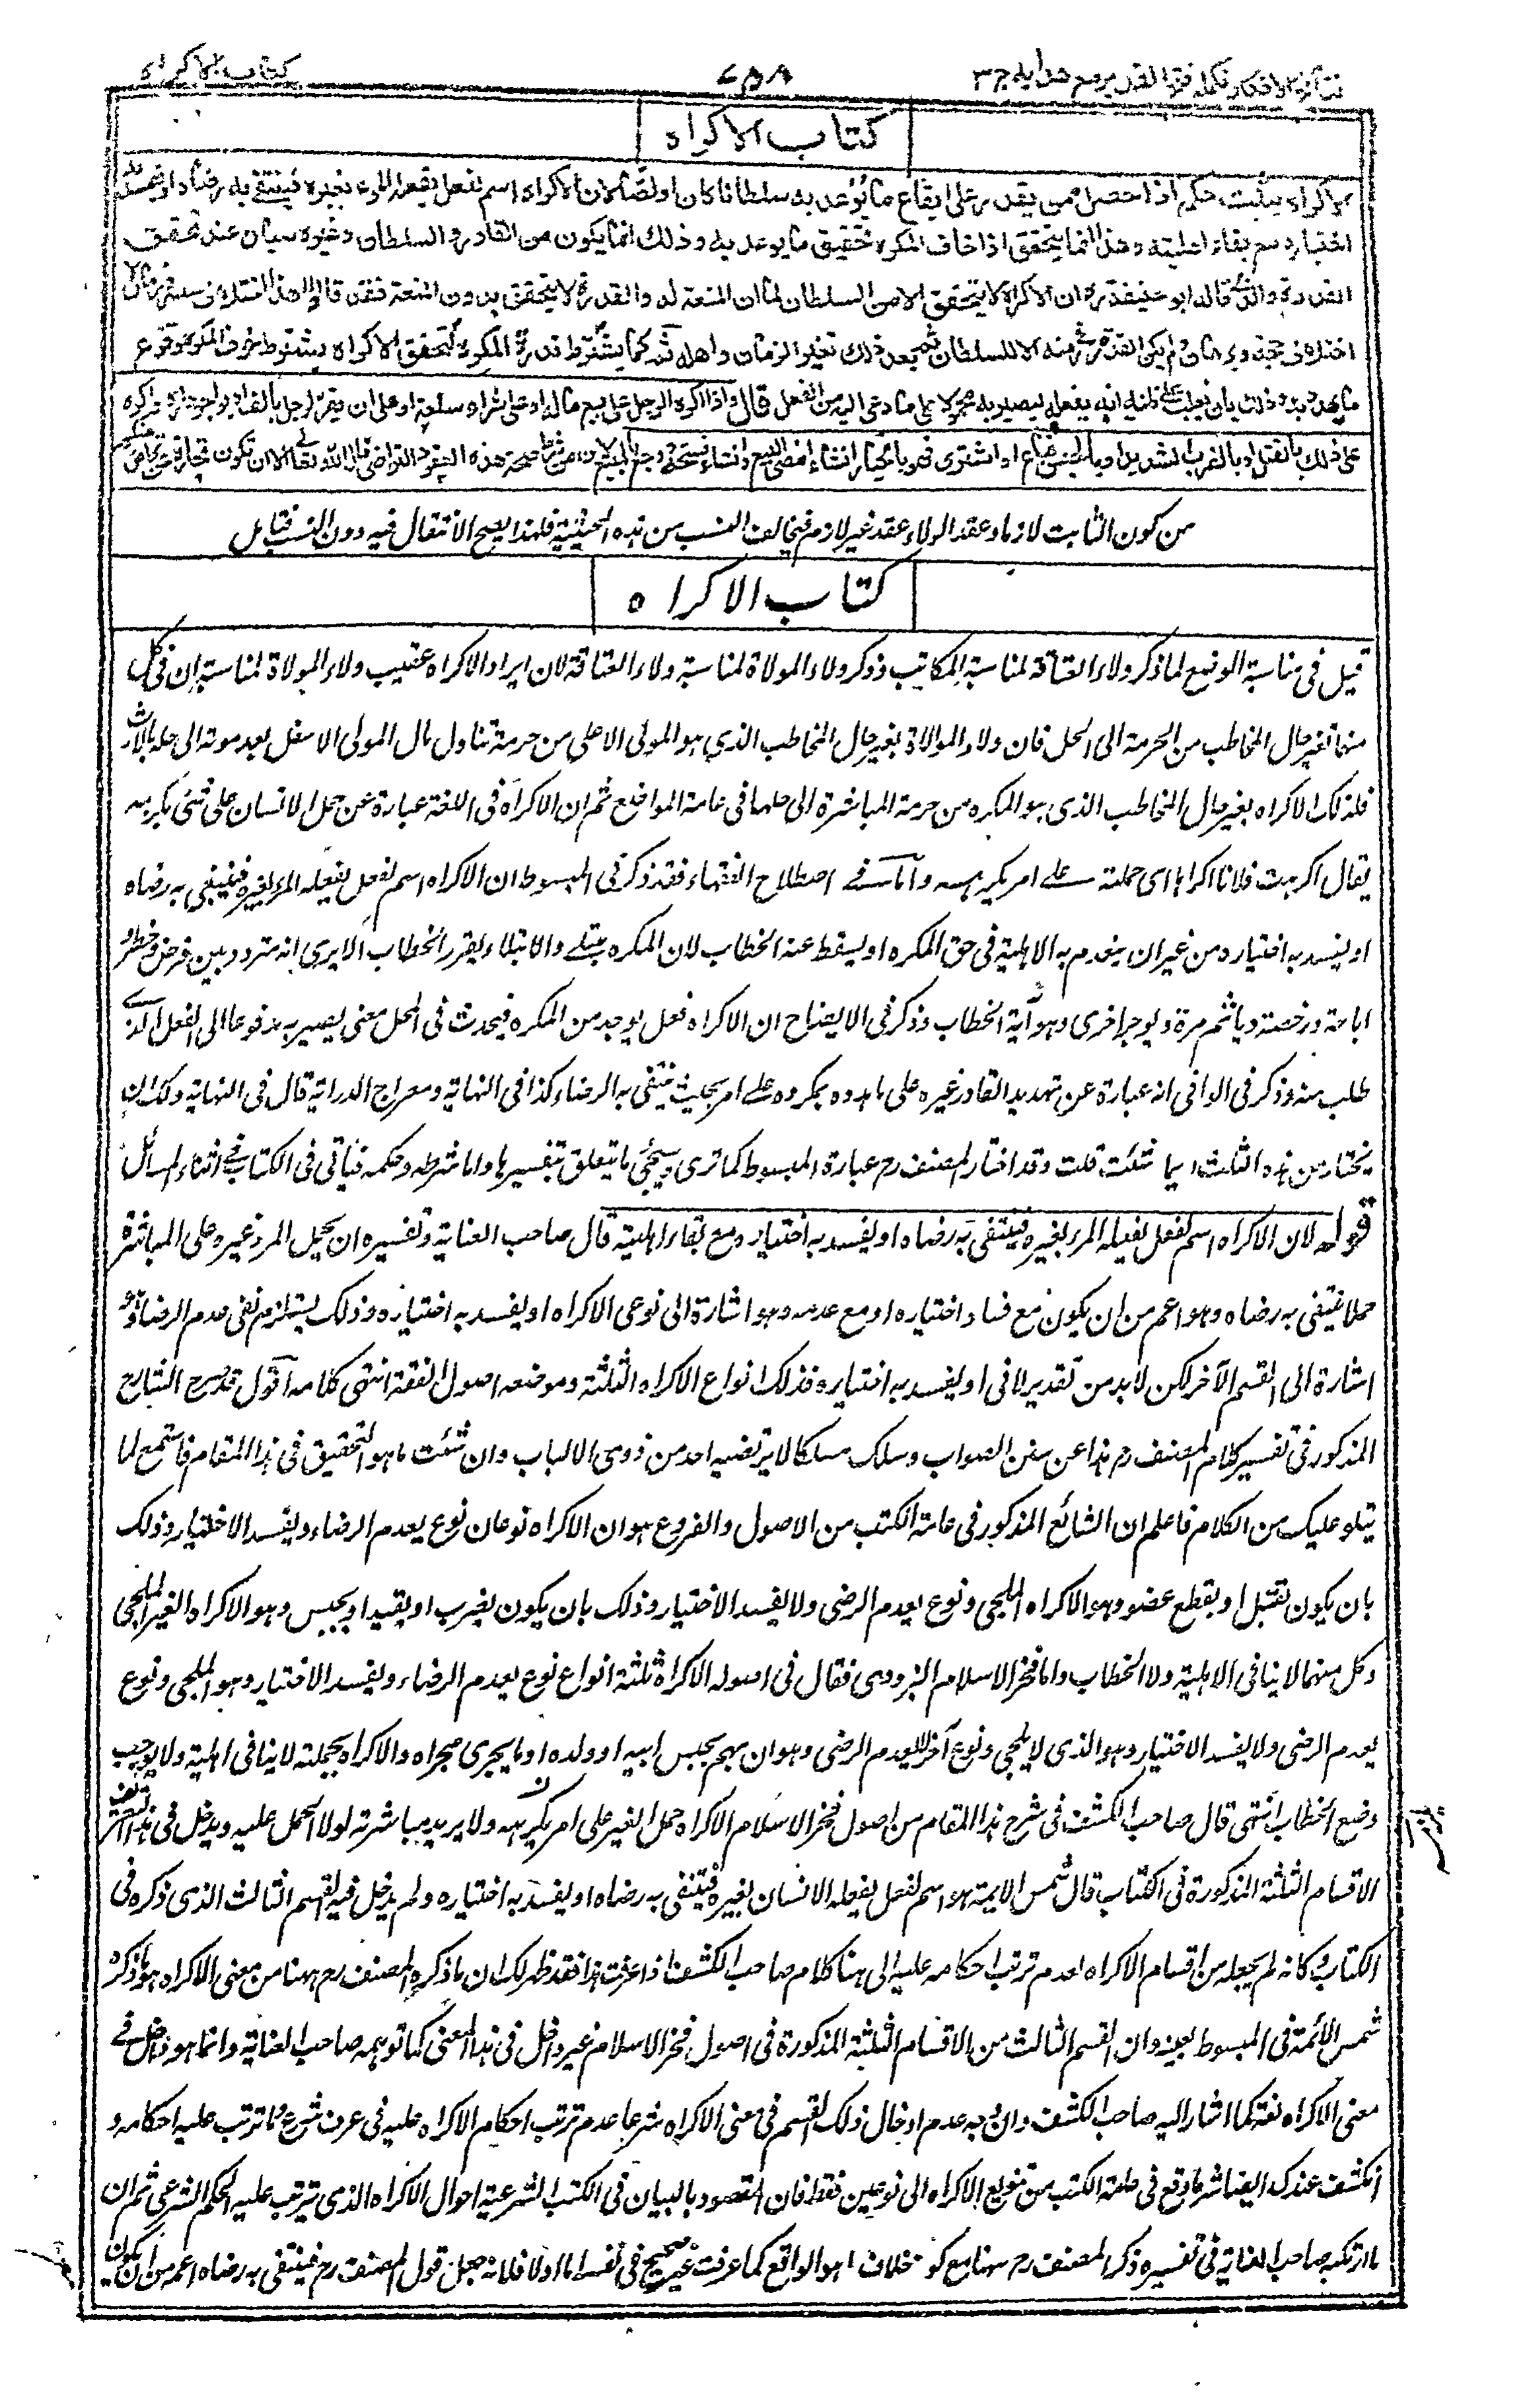 نتائج الافكار تكملة فتح القدير مع هدايه ج ٣
٧٥٨
كتاب الاكراه
كتاب الاكراه
الاكراه يثبت حكمه اذا حصل ممن يقدر على ايقاع ما يوعد به سلطانا كان او لصا لان الاكراه اسم لفعل يفعله المرء بغيره فينتفي به رضاه او يفسد به
اختياره مع بقاء اهليته وهذا انما يتحقق اذا خاف المكره تحقيق ما يوعد به وذلك انما يكون من القادر والسلطان وغيره سيان عند تحقق
القدرة والذي قاله ابو حنيفة ره ان الاكراه لا يتحقق الا من السلطان لما ان المنعة له والقدرة لا تتحقق بدون المنعة فقد قالوا هذا اختلاف عصر وزمان لا
اختلاف حجة وبرهان ولم يكن القدرة في زمنه الا للسلطان ثم بعد ذلك تغير الزمان واهله ثم كما يشترط قدرة المكره لتحقق الاكراه يشترط خوف المكره وقوع
ما يهدد به وذلك بان يغلب على ظنه انه يفعله ليصير به محمولا على ما دعي اليه من الفعل قال واذا اكره الرجل على بيع ماله او على شراء سلعة او على ان يقر لرجل بالف او يواجر داره فاكره
على ذلك بالقتل او بالضرب الشديد او بالحبس فباع او اشترى فهو بالخيار ان شاء امضى البيع وان شاء فسخه ورجع بالمبيع لان من شرط صحة هذه العقود التراضي قال الله تعالى الا ان تكون تجارة عن تراض منكم
من كون الثابت لازما وعقد الولاء عقد غير لازم فيخالف النسب من هذه الحيثية فلهذا يصح الانتقال فيه دون النسب فتأمل
كتاب الاكراه
قيل في مناسبة الوضع لما ذكر ولاء العتاقة لمناسبة المكاتب ذكر ولاء الموالاة لمناسبة ولاء العتاقة لان ايراد الاكراه عقيب ولاء الموالاة لمناسبة ان في كل
منهما تغير حال المخاطب من الحرمة الى الحل فان ولاء الموالاة يغير حال المخاطب الذي هو المولى الاعلى من حرمة تناول مال المولى الاسفل بعد موته الى حله بالارث
فكذلك الاكراه يغير حال المخاطب الذي هو المكره من حرمة المباشرة الى حلها في عامة المواضع ثم ان الاكراه في اللغة عبارة عن حمل الانسان على شئ يكرهه
يقال اكرهت فلانا اكراها اى حملته على امر يكرهه واما في اصطلاح الفقهاء فقد ذكر في المبسوط ان الاكراه اسم لفعل يفعله المرء بغيره فينتفي به رضاه
او يفسد به اختياره من غير ان ينعدم به الاهلية في حق المكره او يسقط عنه الخطاب لان المكره مبتلى والابتلاء يقرر الخطاب الا يرى انه متردد بين فرض وحظر و
اباحة ورخصة وياثم مرة ويوجر اخرى وهو آية الخطاب وذكر في الايضاح ان الاكراه فعل يوجد من المكره فيحدث في المحل معنى يصير به مدفوعا الى الفعل الذي
طلب منه وذكر في الوافي انه عبارة عن تهديد القادر غيره على ما هدده بمكروه على امر بحيث ينتفي به الرضاء كذا في النهاية ومعراج الدراية قال في النهاية ولك ان
يختار من هذه الثلث ايما شئت قلت وقد اختار المصنف رح عبارة المبسوط كما ترى وسيجئ ما يتعلق بتفسيرها واما شرطه وحكمه فيأتي في الكتاب في اثناء المسائل
قوله لان الاكراه اسم لفعل يفعله المرء بغيره فينتفي به رضاه او يفسد به اختياره مع بقاء اهليته قال صاحب العناية وتفسيره ان يحمل المرء غيره على المباشرة
حملا ينتفي به رضاه وهو اعم من ان يكون مع فساد اختياره او مع عدمه وهو اشارة الى نوعي الاكراه او يفسد به اختياره وذلك يستلزم نفي عدم الرضاء وهو
اشارة الى القسم الآخر لكن لا بد من تقدير لا في او يفسد به اختياره فذلك انواع الاكراه الثلثة وموضعه اصول الفقه انتهى كلامه اقول قد خرج الشارح
المذكور في تفسير كلام المصنف رح هذا عن سنن الصواب وسلك مسلكا لا يرتضيه احد من ذوى الالباب وان شئت ما هو التحقيق في هذا المقام فاستمع لما
يتلو عليك من الكلام فاعلم ان الشائع المذكور في عامة الكتب من الاصول والفروع هو ان الاكراه نوعان نوع يعدم الرضاء ويفسد الاختيار وذلك
بان يكون بقتل او بقطع عضو وهو الاكراه الملجي ونوع يعدم الرضى ولا يفسد الاختيار وذلك بان يكون بضرب او بقيد او بحبس وهو الاكراه الغير الملجي
وكل منهما لا ينافي الاهلية ولا الخطاب واما فخر الاسلام البزدوى فقال في اصوله الاكراه ثلثة انواع نوع يعدم الرضاء ويفسد الاختيار وهو الملجي ونوع
يعدم الرضى ولا يفسد الاختيار وهو الذى لا يلجي ونوع آخر لا يعدم الرضى وهو ان يهم بحبس ابيه او ولده او ما يجرى مجراه والاكراه بجملته لا ينافي اهلية ولا يوجب
وضع الخطاب انتهى قال صاحب الكشف في شرح هذا المقام من اصول فخر الاسلام الاكراه حمل الغير على امر يكرهه ولا يريد مباشرته لولا الحمل عليه ويدخل في هذا التعريف
الاقسام الثلثة المذكورة في الكتاب قال شمس الايمة هو اسم لفعل يفعله الانسان بغيره فينتفي به رضاه او يفسد به اختياره ولم يدخل فيه القسم الثالث الذى ذكره في
الكتاب وكانه لم يجعله من اقسام الاكراه لعدم ترتب احكامه عليه الى هنا كلام صاحب الكشف اذا عرفت هذا فقد ظهر لك ان ما ذكره المصنف رح ههنا من معنى الاكراه هو ما ذكره
شمس الائمة في المبسوط بعينه وان القسم الثالث من الاقسام الثلثة المذكورة في اصول فخر الاسلام غير داخل في هذا المعنى كما توهمه صاحب العناية وانما هو داخل في
معنى الاكراه لغة كما اشار اليه صاحب الكشف وان وجه عدم ادخال ذلك القسم في معنى الاكراه شرعا عدم ترتب احكام الاكراه عليه في عرف شرع وما ترتب عليه احكامه و
انكشف عندك ايضا سر ما وقع في عامة الكتب من تنويع الاكراه الى نوعين فقط فان المقصود بالبيان في الكتب الشرعية احوال الاكراه الذى يترتب عليه الحكم الشرعي ثم ان
ما ارتكبه صاحب العناية في تفسيره ذكر المصنف رح ههنا مع كونه خلاف ما هو الواقع كما عرفت غير صحيح في نفسه اما اولا فلانه جعل قول المصنف رح فينتفي به رضاه اعم من ان يكون